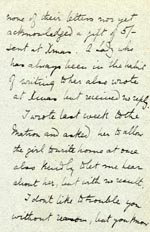 none of their letters nor yet
acknowledged a gift of 5/-
sent at Xmas. A Lady who
has always been in the habit
of writing to her also wrote
at Xmas but received no reply.
I wrote last week to the
Matron and asked her to allow
the girl to write home at once
also kindly to let me hear
about her, but with no result.
I dont like to trouble you
without reason, but you know